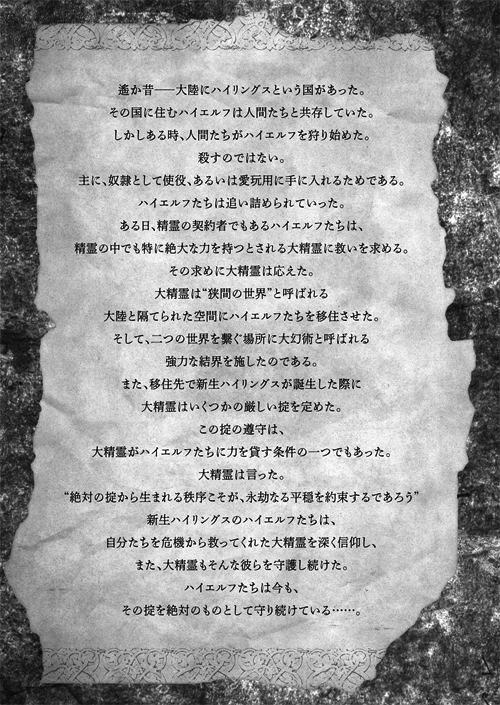 遙か昔――大陸にハイリングスという国があった。
その国に住むハイエルフは人間たちと共存していた。
しかしある時、人間たちがハイエルフを狩り始めた。
殺すのではない。
主に、奴隷として使役、あるいは愛玩用に手に入れるためである。
ハイエルフたちは追い詰められていった。
ある日、精霊の契約者でもあるハイエルフたちは、
精霊の中でも特に絶大な力を持つとされる大精霊に救いを求める。
その求めに大精霊は応えた。
大精霊は“狭間の世界”と呼ばれる
大陸と隔てられた空間にハイエルフたちを移住させた。
そして、二つの世界を繋ぐ場所に大幻術と呼ばれる
強力な結界を施したのである。
また、移住先で新生ハイリングスが誕生した際に
大精霊はいくつかの厳しい掟を定めた。
この掟の遵守は、
大精霊がハイエルフたちに力を貸す条件の一つでもあった。
大精霊は言った。
“絶対の掟から生まれる秩序こそが、永劫なる平穏を約束するであろう”
新生ハイリングスのハイエルフたちは、
自分たちを危機から救ってくれた大精霊を深く信仰し、
また、大精霊もそんな彼らを守護し続けた。
ハイエルフたちは今も、
その掟を絶対のものとして守り続けている……。